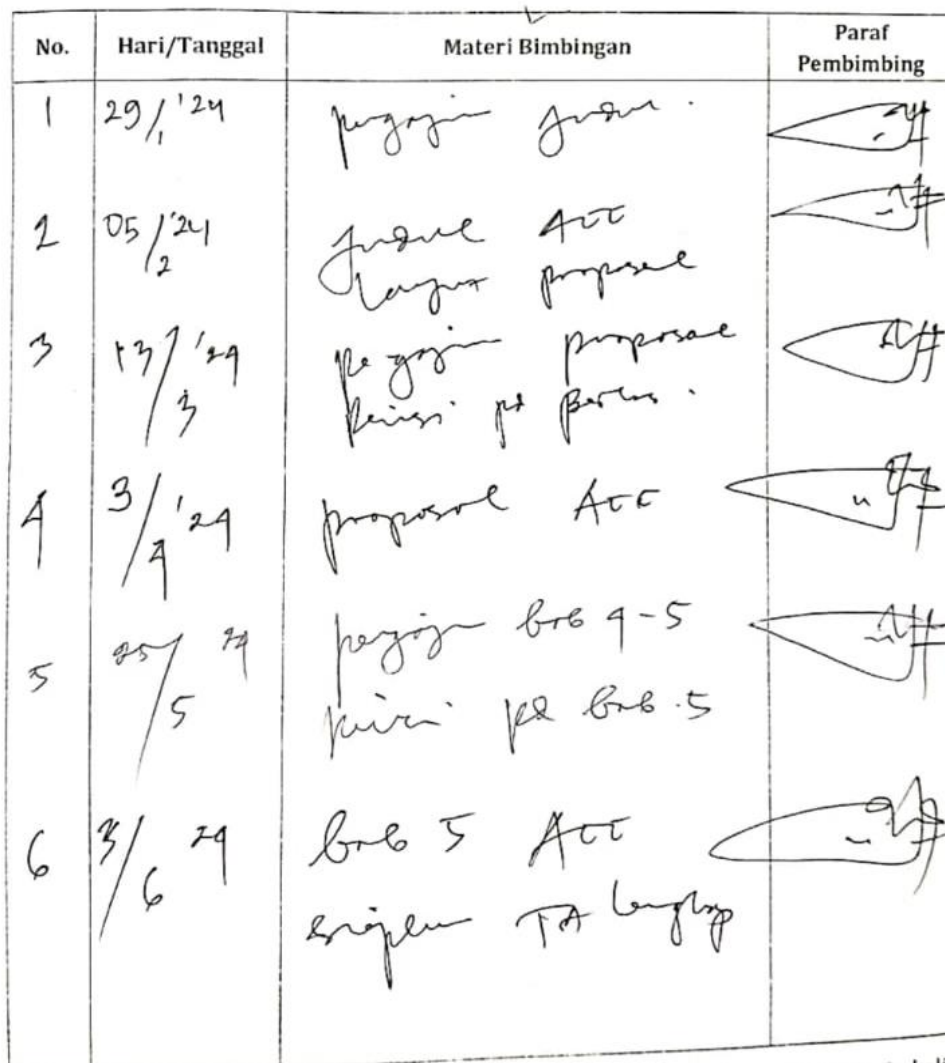 No. Hari/Tanggal Materi Bimbingan Paraf Pembimbing
1 29/1 '24 pengajuan Judul.
2 05/2 '24 Judul ACC
Lanjut proposal
3 13/3 '24 pengajuan proposal
Revisi pd
4 3/4 '24 proposal ACC
5 25/5 24 pengajuan bab 4-5
revisi pd bab 5
6 3/6 24 bab 5 ACC
siapkan TA lengkap